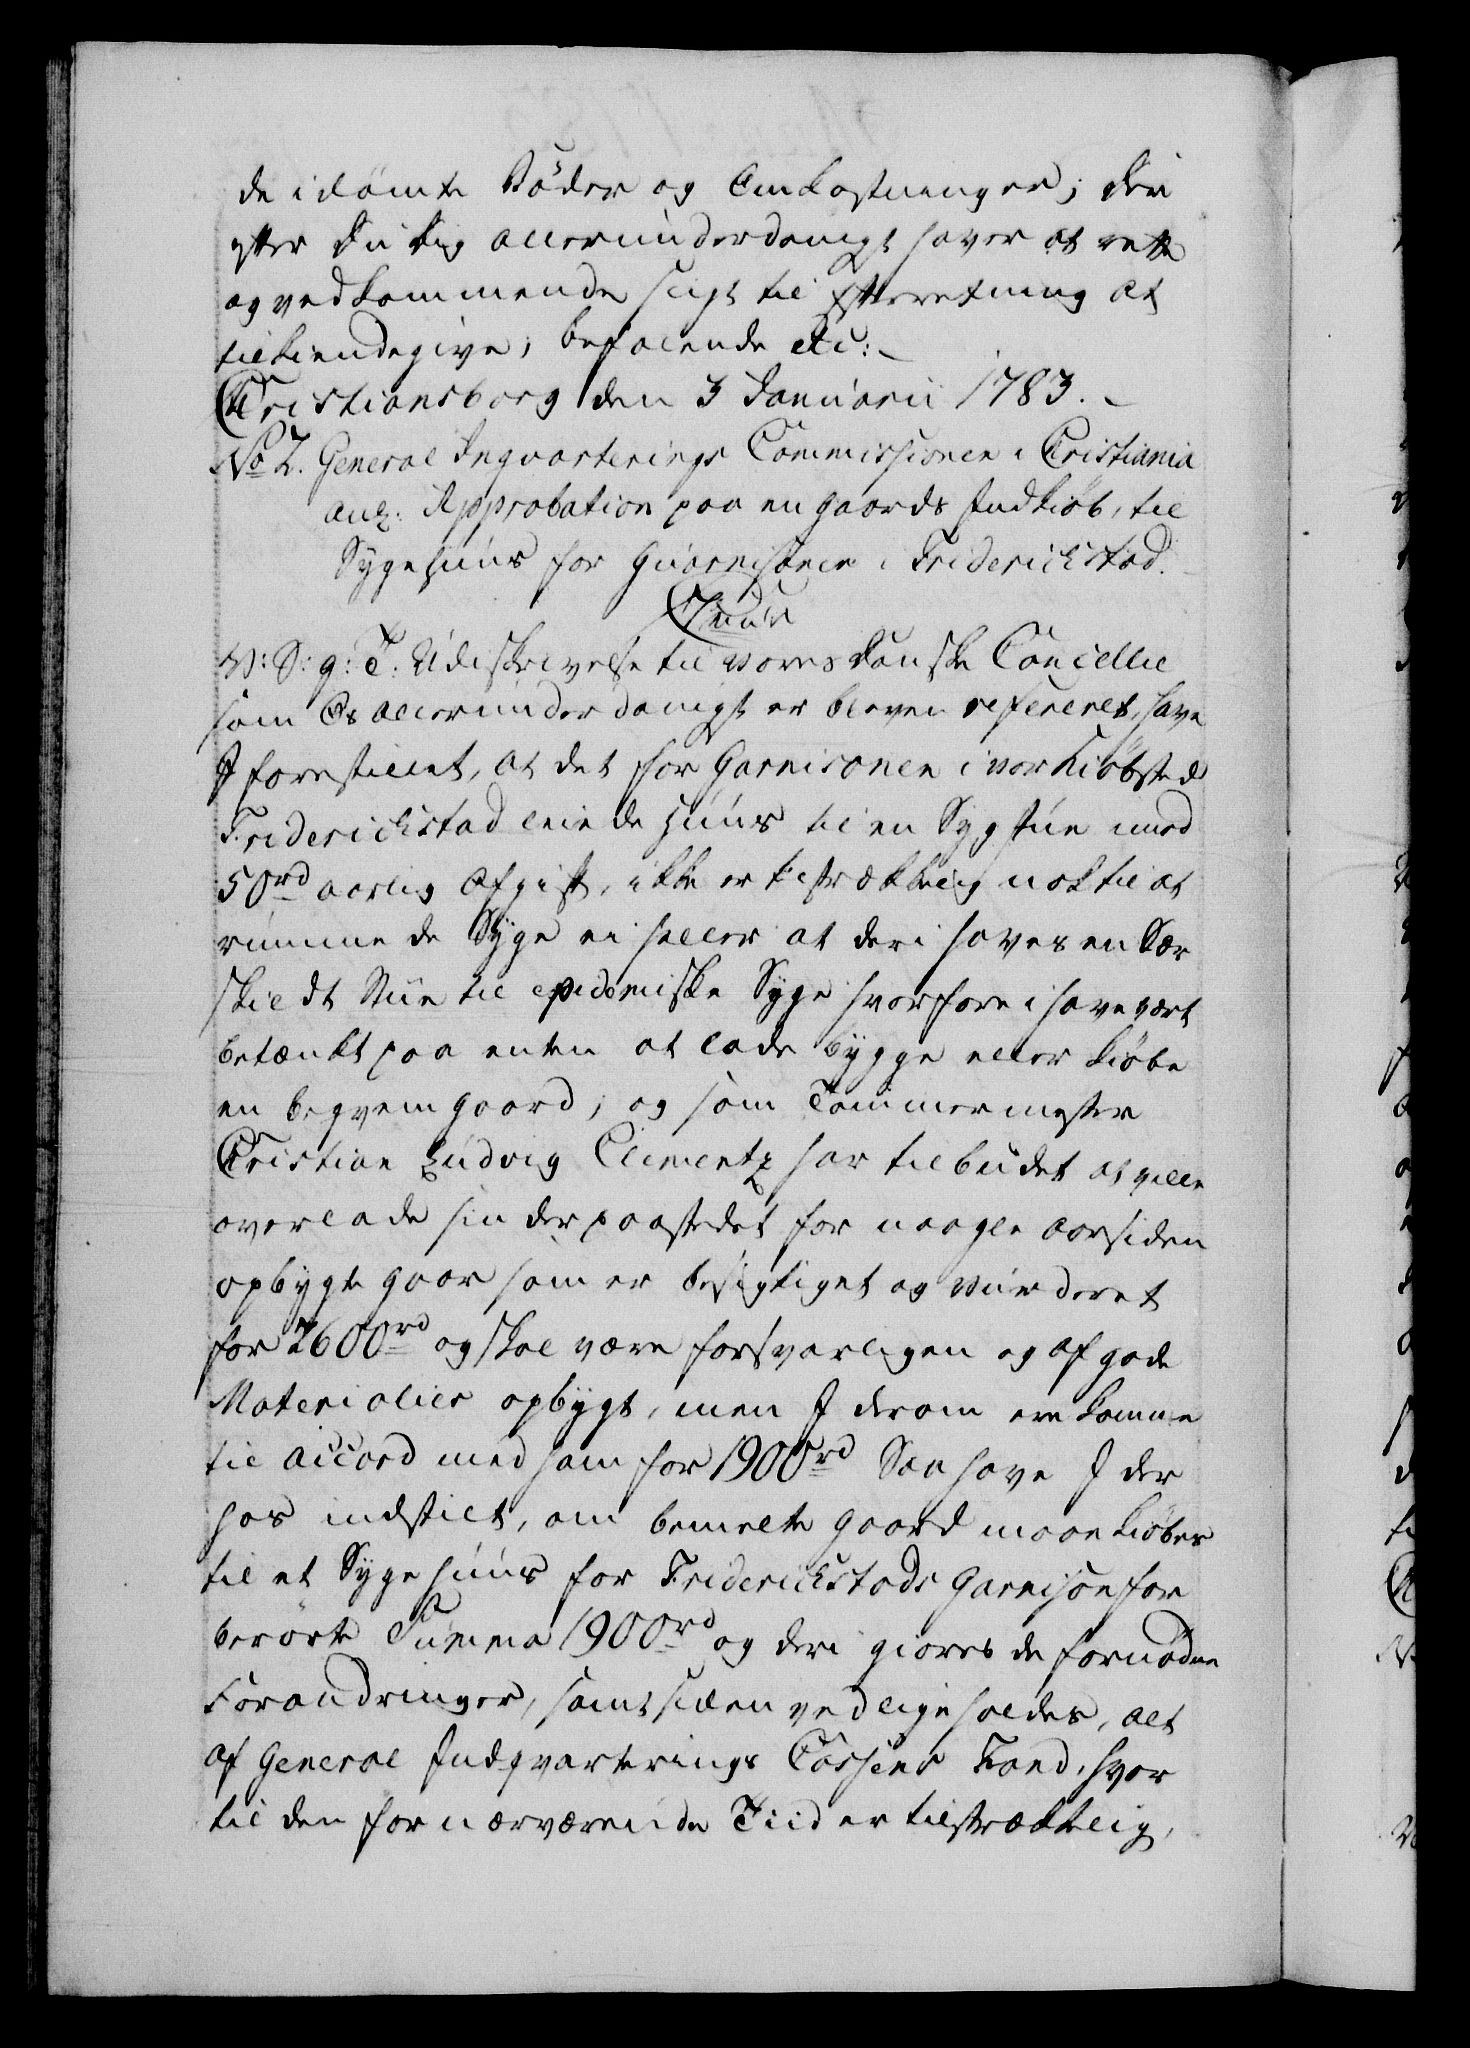 de idömte Böder og Omkostninger; Der
efter Du Dig allerunderdanigst haver at rette
og vedkommende sligt til Efterretning at
tilkiendegive; befalende etc:
Christiansborg den 3 Januarii 1783.
No 2. General Inqvarterings Commissionen i Christiania
ang: Approbation paa en Gaards Indkiöb, til
Sygehuus for Guarnisonen i Friderichstad.
V: S: g: T. Udi Skrivelse til vores danske Cancellie
som Os allerunderdanigst er bleven refereret, have
I forestillet, at det for Garnisonen i vor Kiöbsted
Friderichstad leiede Huus til en Sygstue imod
50rd aarlig Afgift, ikke er tilstrækkelig nok til at
rumme de Syge ei heller at deri haves en Sær
skildt Stue til epidemiske Syge hvorfore i have vært
betænkt paa enten at lade bygge eller kiöbe
en beqvem gaard; og som Tömmermester
Christian Ludvig Clementz har tilbudet at ville
overlade sin der paa stedet for nogle aar siden
opbygte gaar som er besigtiget og vurderet
for 2600rd og skal være forsvarligen og af gode
Materialier opbygt, men I derom ere komne
til accord med ham for 1900rd Saa have I der
hos indstilt, om bemelte gaard maae kiöbes
til et Sygehuus for Friderichstads Garnison for
berörte Summa 1900rd og deri giöres de fornödne
Forandringer, samt siden vedligeholdes, alt
af General Indqvarterings Cassens Fond, hvor
til den for nærværende Tiid er tilstrækkelig,